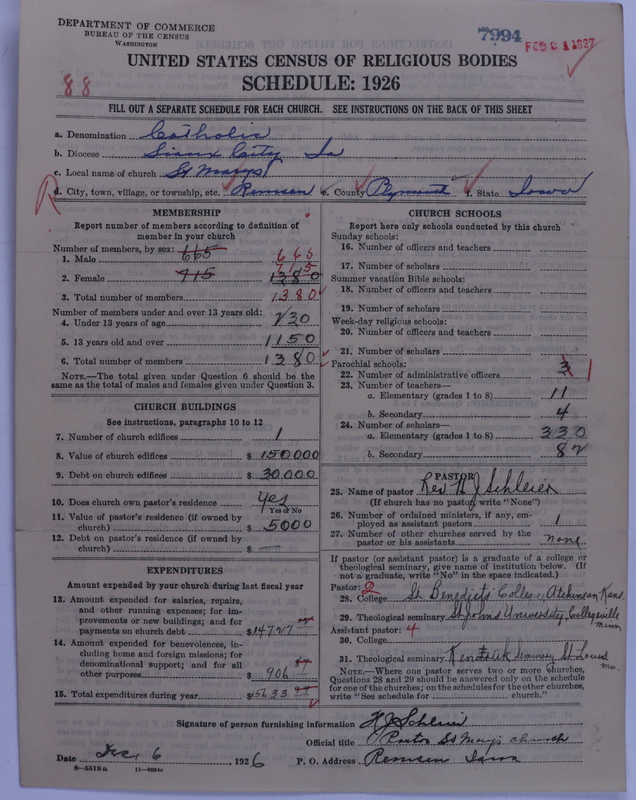 DEPARTMENT OF COMMERCE
BUREAU OF THE CENSUS
WASHINGTON
7994
FEB 1 1927
UNITED STATES CENSUS OF RELIGIOUS BODIES
SCHEDULE: 1926
88
FILL OUT A SEPARATE SCHEDULE FOR EACH CHURCH. SEE INSTRUCTIONS ON THE BACK OF THIS SHEET
a. Denomination Catholic
b. Diocese Sioux City Ia
c. Local name of church St Marys
R
d. City, town, village, or township, etc. Remsen e. County Plymouth f. State Iowa
MEMBERSHIP
Report number of members according to definition of member in your church
Number of members, by sex: 665
1. Male 665
715
2. Female 715 1380
3. Total number of members 1380
Number of members under and over 13 years old:
4. Under 13 years of age 230
5. 13 years old and over 1150
6. Total number of members 1380
NOTE.—The total given under Question 6 should be the same as the total of males and females given under Question 3.
CHURCH BUILDINGS
See instructions, paragraphs 10 to 12
7. Number of church edifices 1
8. Value of church edifices $ 150000
9. Debt on church edifices $ 30.000
10. Does church own pastor's residence yes
Yes or No
11. Value of pastor's residence (if owned by church) $ 5000
12. Debt on pastor's residence (if owned by church) $ —
EXPENDITURES
Amount expended by your church during last fiscal year
13. Amount expended for salaries, repairs, and other running expenses; for improvements or new buildings; and for payments on church debt $ 14727
14. Amount expended for benevolences, including home and foreign missions; for denominational support; and for all other purposes $ 906
15. Total expenditures during year $ 15633
CHURCH SCHOOLS
Report here only schools conducted by this church
Sunday schools:
16. Number of officers and teachers
17. Number of scholars
Summer vacation Bible schools:
18. Number of officers and teachers
19. Number of scholars
Week-day religious schools:
20. Number of officers and teachers
21. Number of scholars
Parochial schools:
22. Number of administrative officers 3 1
23. Number of teachers—
a. Elementary (grades 1 to 8) 11
b. Secondary 4
24. Number of scholars—
a. Elementary (grades 1 to 8) 330
b. Secondary 82
PASTOR
25. Name of pastor Rev H J Schleier
(If church has no pastor, write "None")
26. Number of ordained ministers, if any, employed as assistant pastors 1
27. Number of other churches served by the pastor or his assistants none
If pastor (or assistant pastor) is a graduate of a college or theological seminary, give name of institution below. (If not a graduate, write "No" in the space indicated.)
Pastor: 2
28. College St Benedicts' College, Atchinson Kans.
29. Theological seminary St John's University, Collegeville Minn
Assistant pastor: 4
30. College
31. Theological seminary Kendrick Seminary St Louis Mo.
NOTE.—Where one pastor serves two or more churches, Questions 28 and 29 should be answered only on the schedule for one of the churches; on the schedules for the other churches, write "See schedule for church."
Signature of person furnishing information H J Schleier
Official title Pastor St Mary's Church
Date Dec 6, 1926 P. O. Address Remsen Iowa
8—5519a